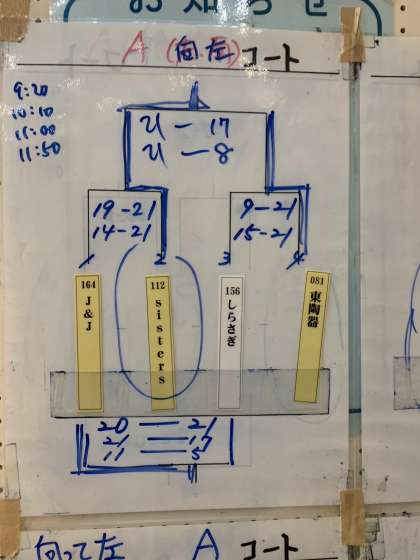 お知らせ
A (向左) コート
9:20
10:10
11:00
11:50
21 — 17
21 — 8
19-21
14-21
9-21
15-21
1 2 3 4
164 J&J
112 sisters
156 しらさぎ
081 東陶器
20 — 21
21 — 17
11 — 5
向って左 A コート